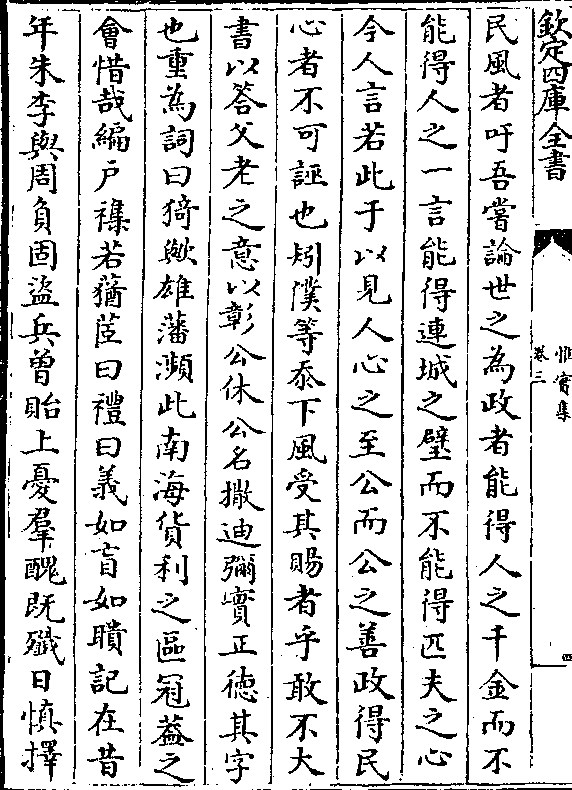 欽定四庫全書
惟實集
卷三
四
民風者吁吾嘗論世之為政者能得人之千金而不
能得人之一言能得連城之璧而不能得匹夫之心
今人言若此于以見人心之至公而公之善政得民
心者不可誣也矧僕等忝下風受其賜者乎敢不大
書以答父老之意以彰公休公名撒迪彌實正徳其字
也重為詞曰猗歟雄藩瀕此南海貨利之區冠葢之
會惜哉編户襍若蕕茝曰禮曰義如盲如瞶記在昔
年朱李與周負固盜兵曽貽上憂羣醜既殲日慎擇